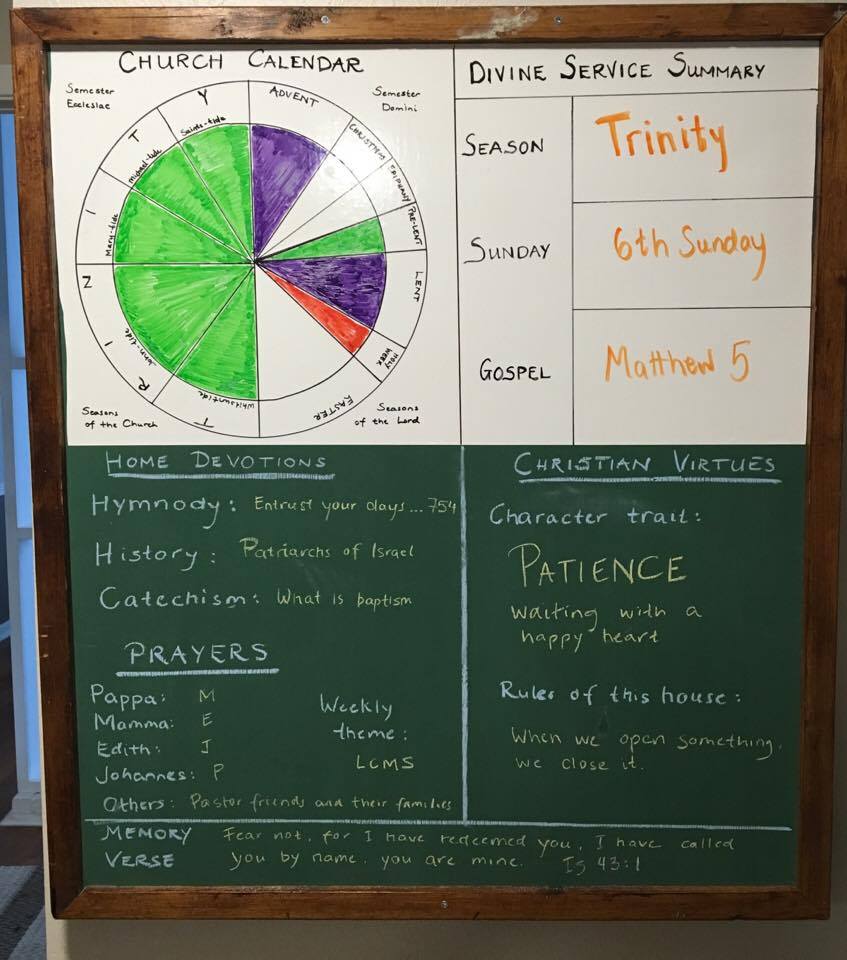 CHURCH CALENDAR
Semester
Ecclesiae
Semester
Domini
ADVENT
CHRISTMAS
EPIPHANY
PRE-LENT
LENT
HOLY
WEEK
EASTER
TRINITY
Whitsuntide
John-tide
Mary-tide
Michael-tide
Saints-tide
Seasons
of the Church
Seasons
of the Lord
DIVINE SERVICE SUMMARY
SEASON
Trinity
SUNDAY
6th Sunday
GOSPEL
Matthew 5
HOME DEVOTIONS
Hymnody: Entrust your days... 754
History: Patriarchs of Israel
Catechism: What is baptism
PRAYERS
Pappa: M
Mamma: E
Edith: J
Johannes: P
Others: Pastor friends and their families
Weekly
theme:
LCMS
CHRISTIAN VIRTUES
Character trait:
PATIENCE
waiting with a
happy heart
Rules of this house:
When we open something,
we close it.
MEMORY
VERSE
Fear not, for I have redeemed you, I have called
you by name, you are mine. IS 43:1